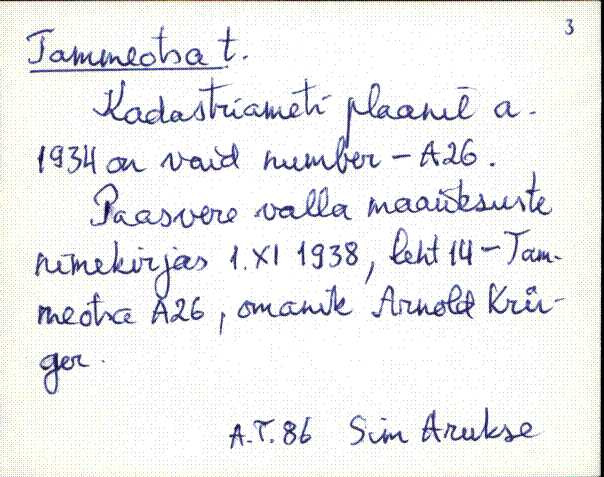 3
Tammeotsa t.
Kadastriameti plaanil a.
1934 on vaid number - A26.
Paasvere valla maaüksuste
nimekirjas 1.XI 1938, leht 14 - Tam-
meotsa A26, omanik Arnold Krü-
ger.
A.T. 86 Siim Arukse